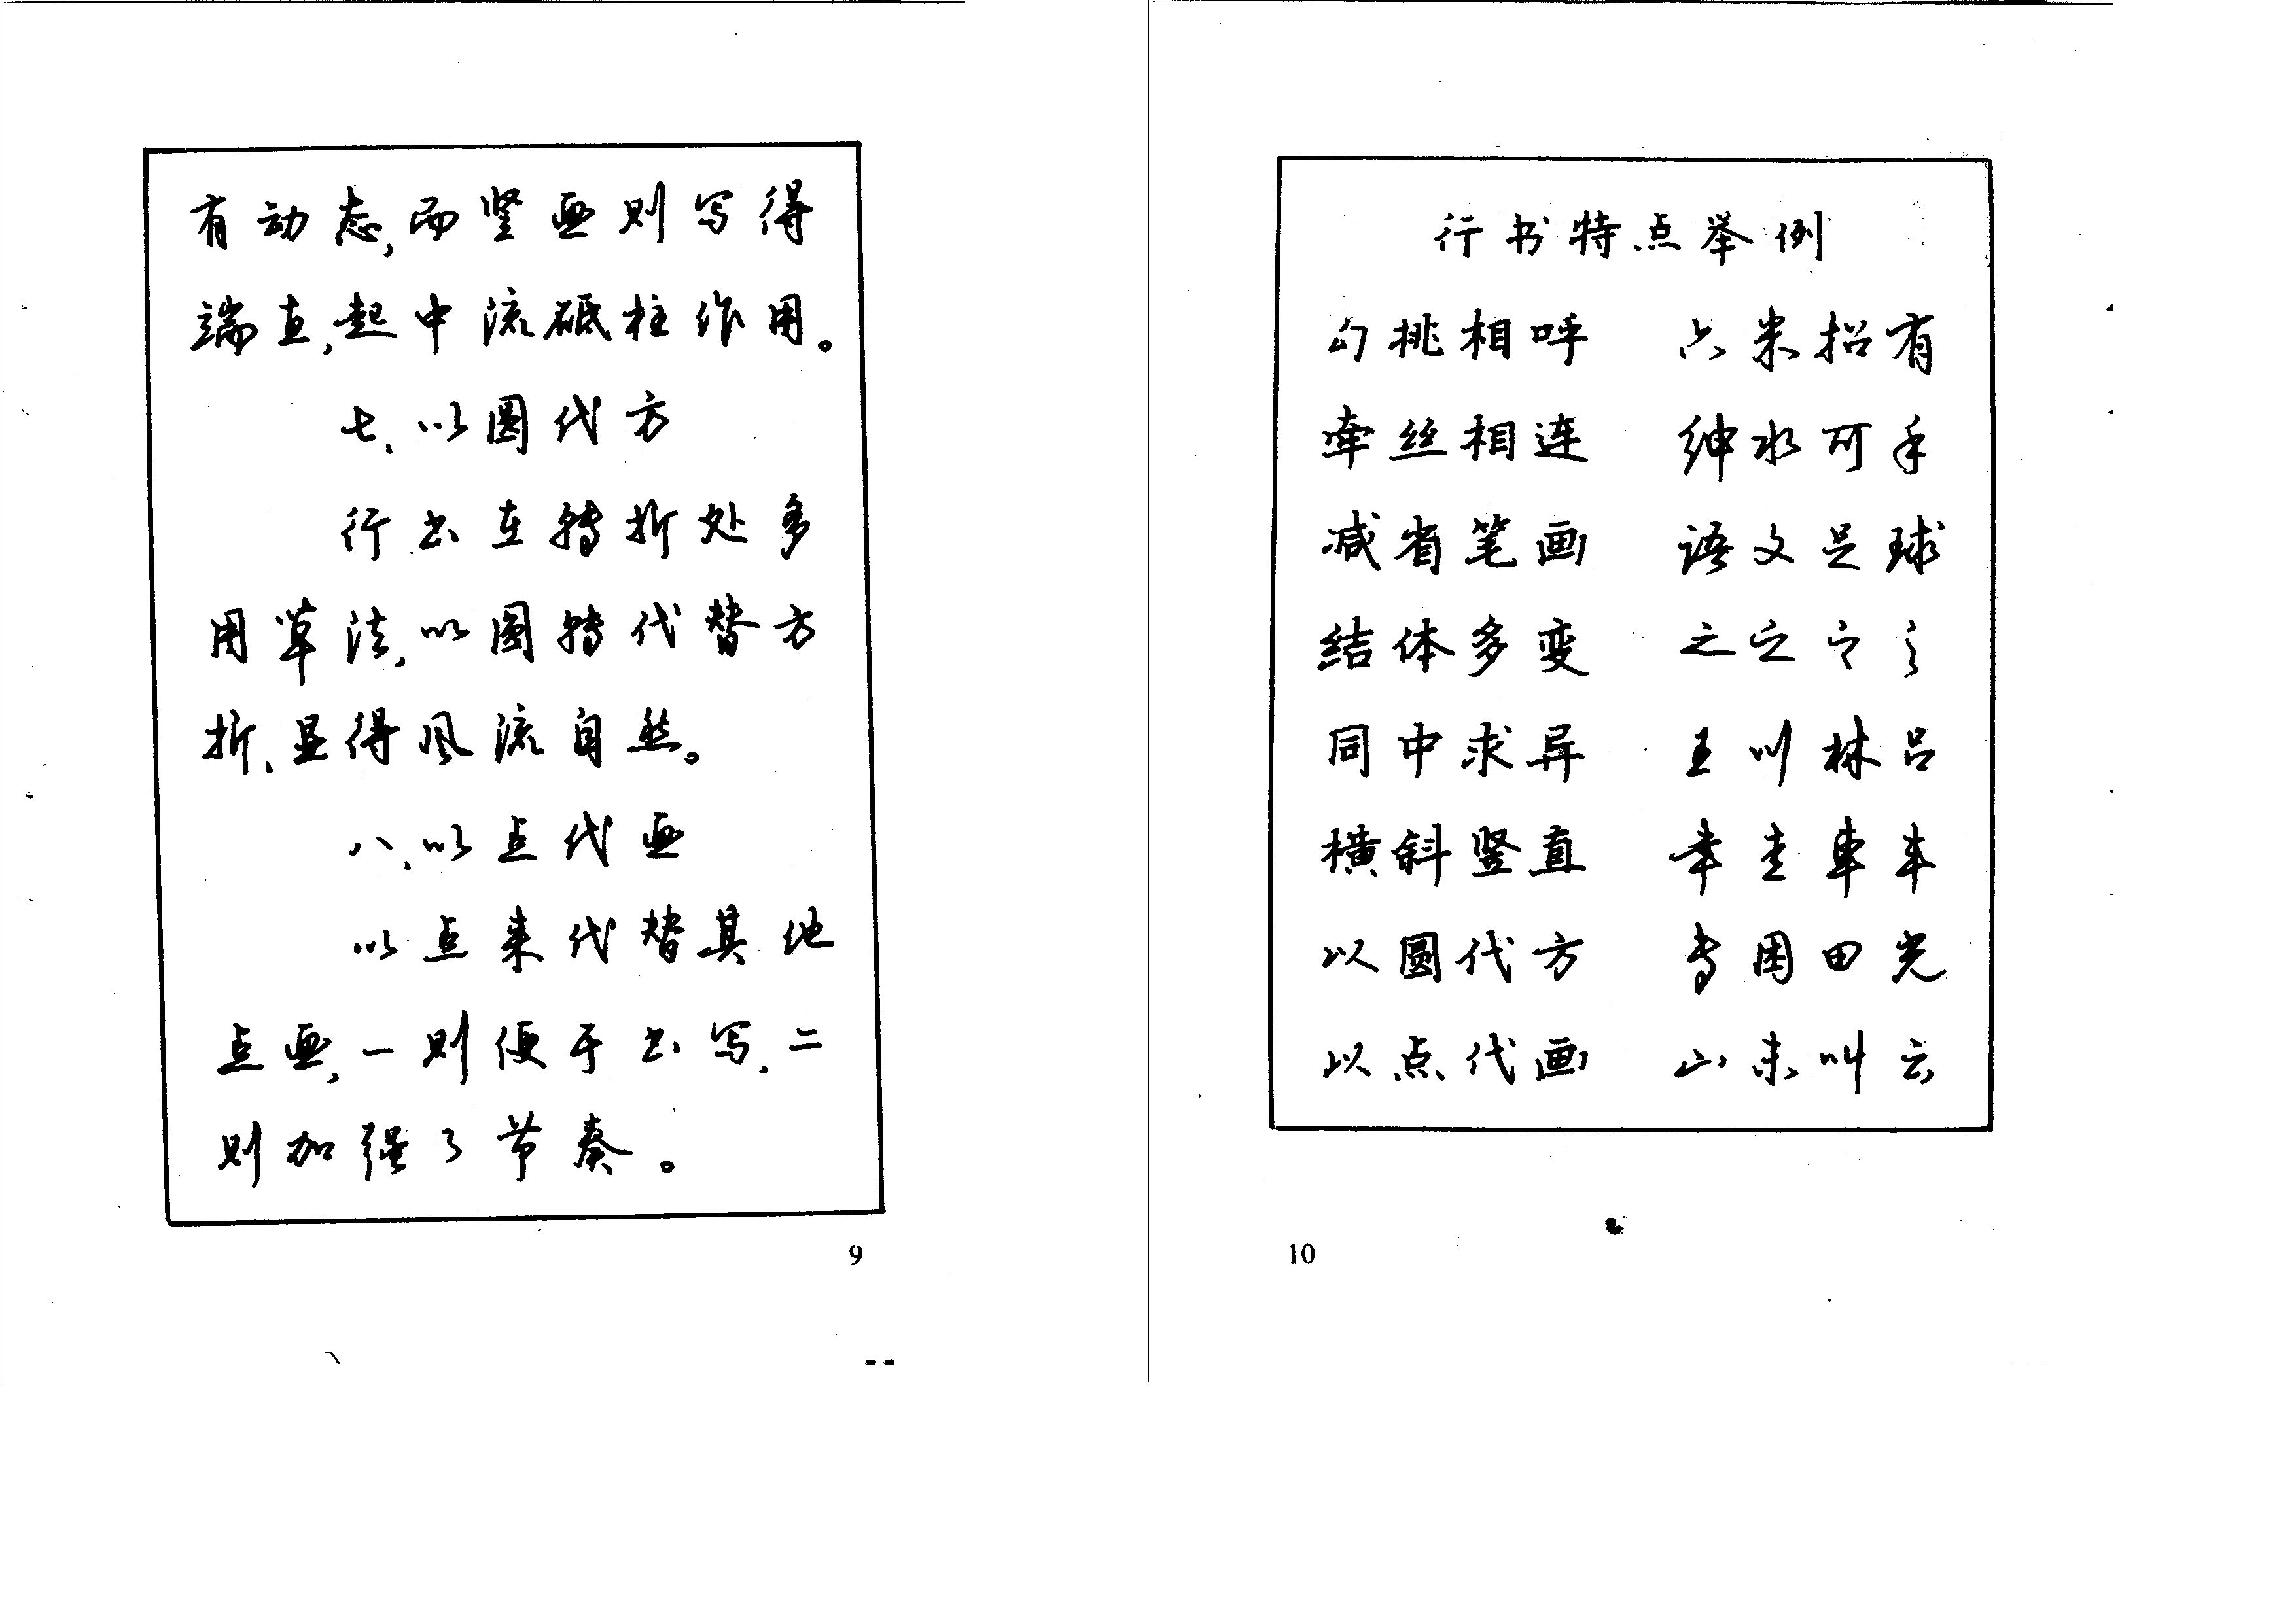 有动态，而竖画则写得
端直，起中流砥柱作用。
七、以圆代方
行书在转折处多
用草法，以圆转代替方
折、显得风流自然。
八、以点代画
以点来代替其他
点画，一则便于书写，二
则加强了节奏。
9
行书特点举例
勾挑相呼 六米招有
牵丝相连 绅水可手
减省笔画 语文足球
结体多变 之之之之
同中求异 王川林吕
横斜竖直 幸圭車丰
以圆代方 专困田光
以点代画 山未叫云
10